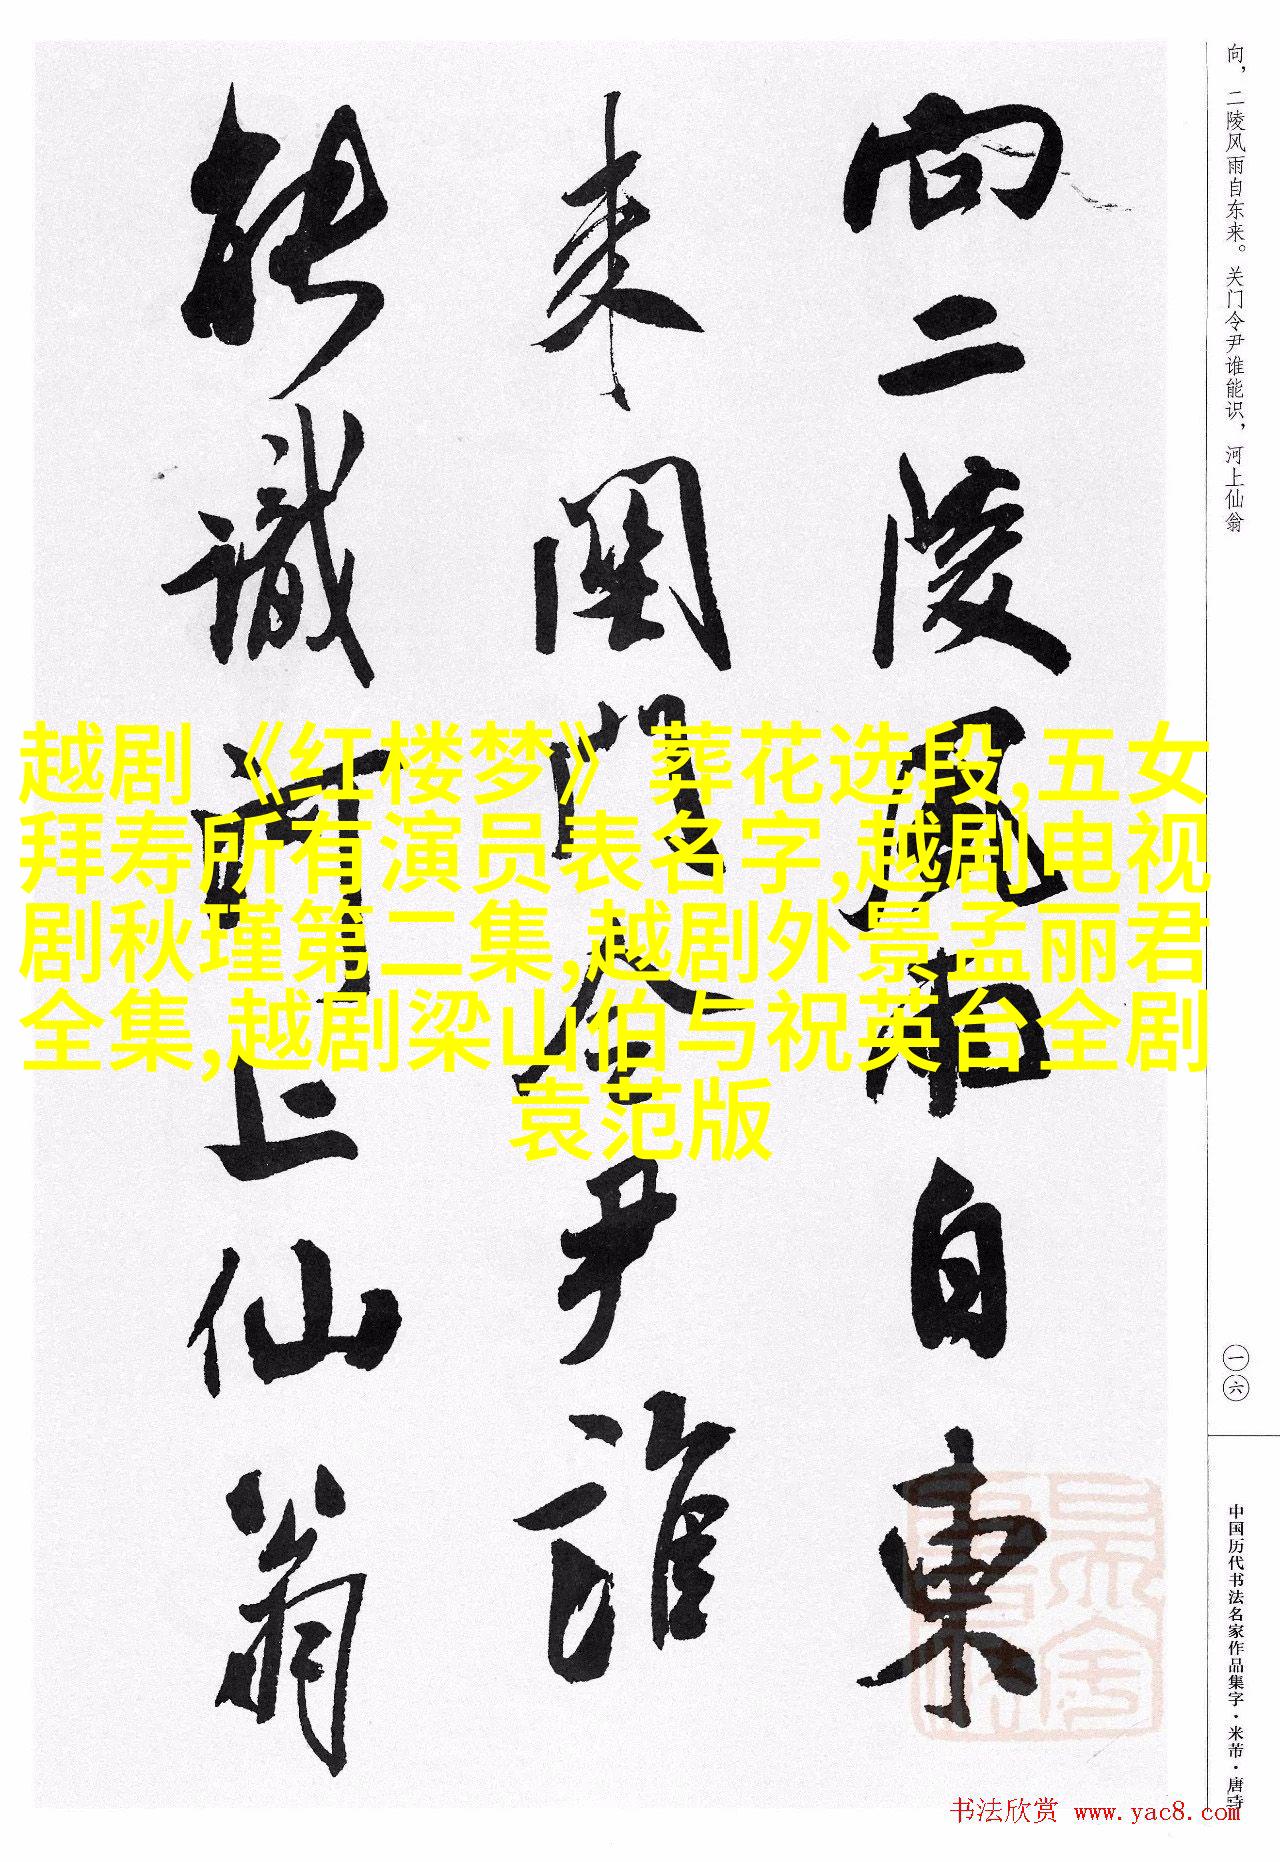 向二陵风雨自東
来関門令尹誰
能識河上仙翁
向，二陵风雨自东来。关门令尹谁能识，河上仙翁
一六
中国历代书法名家作品集字·米芾·唐诗
越剧《红楼梦》葬花选段,五女
拜寿所有演员表名字,越剧电视
剧秋瑾第二集,越剧外景孟丽君
全集,越剧梁山伯与祝英台全剧
袁范版
书法欣赏 www.yac8.com